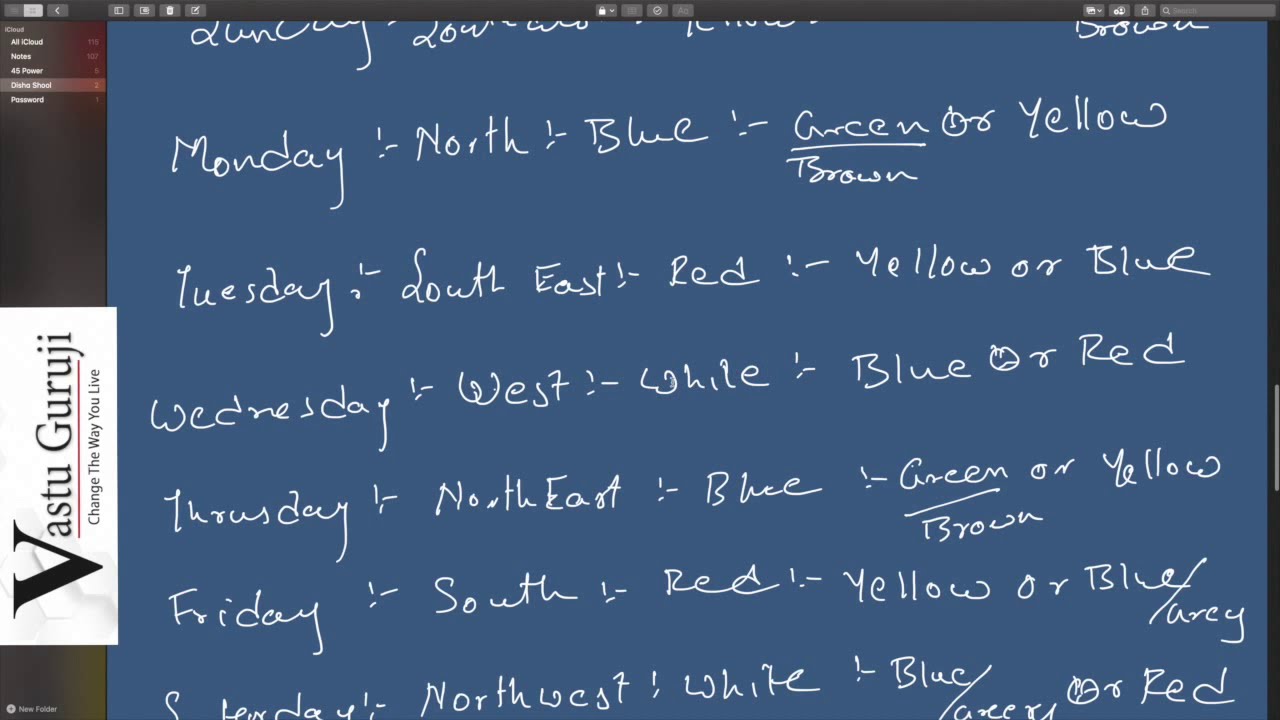 Search
iCloud
All iCloud 115
Notes 107
45 Power 5
Disha Shool 2
Password 1
Brown
Monday :- North :- Blue :- Green Or Yellow
Brown
Tuesday :- South East :- Red :- Yellow or Blue
Wednesday :- West :- White :- Blue Or Red
Thrusday :- NorthEast :- Blue :- Green or Yellow
Brown
Friday :- South :- Red :- Yellow or Blue/
Grey
Northwest : White :- Blue/
Or Red
Vastu Guruji
Change The Way You Live
New Folder